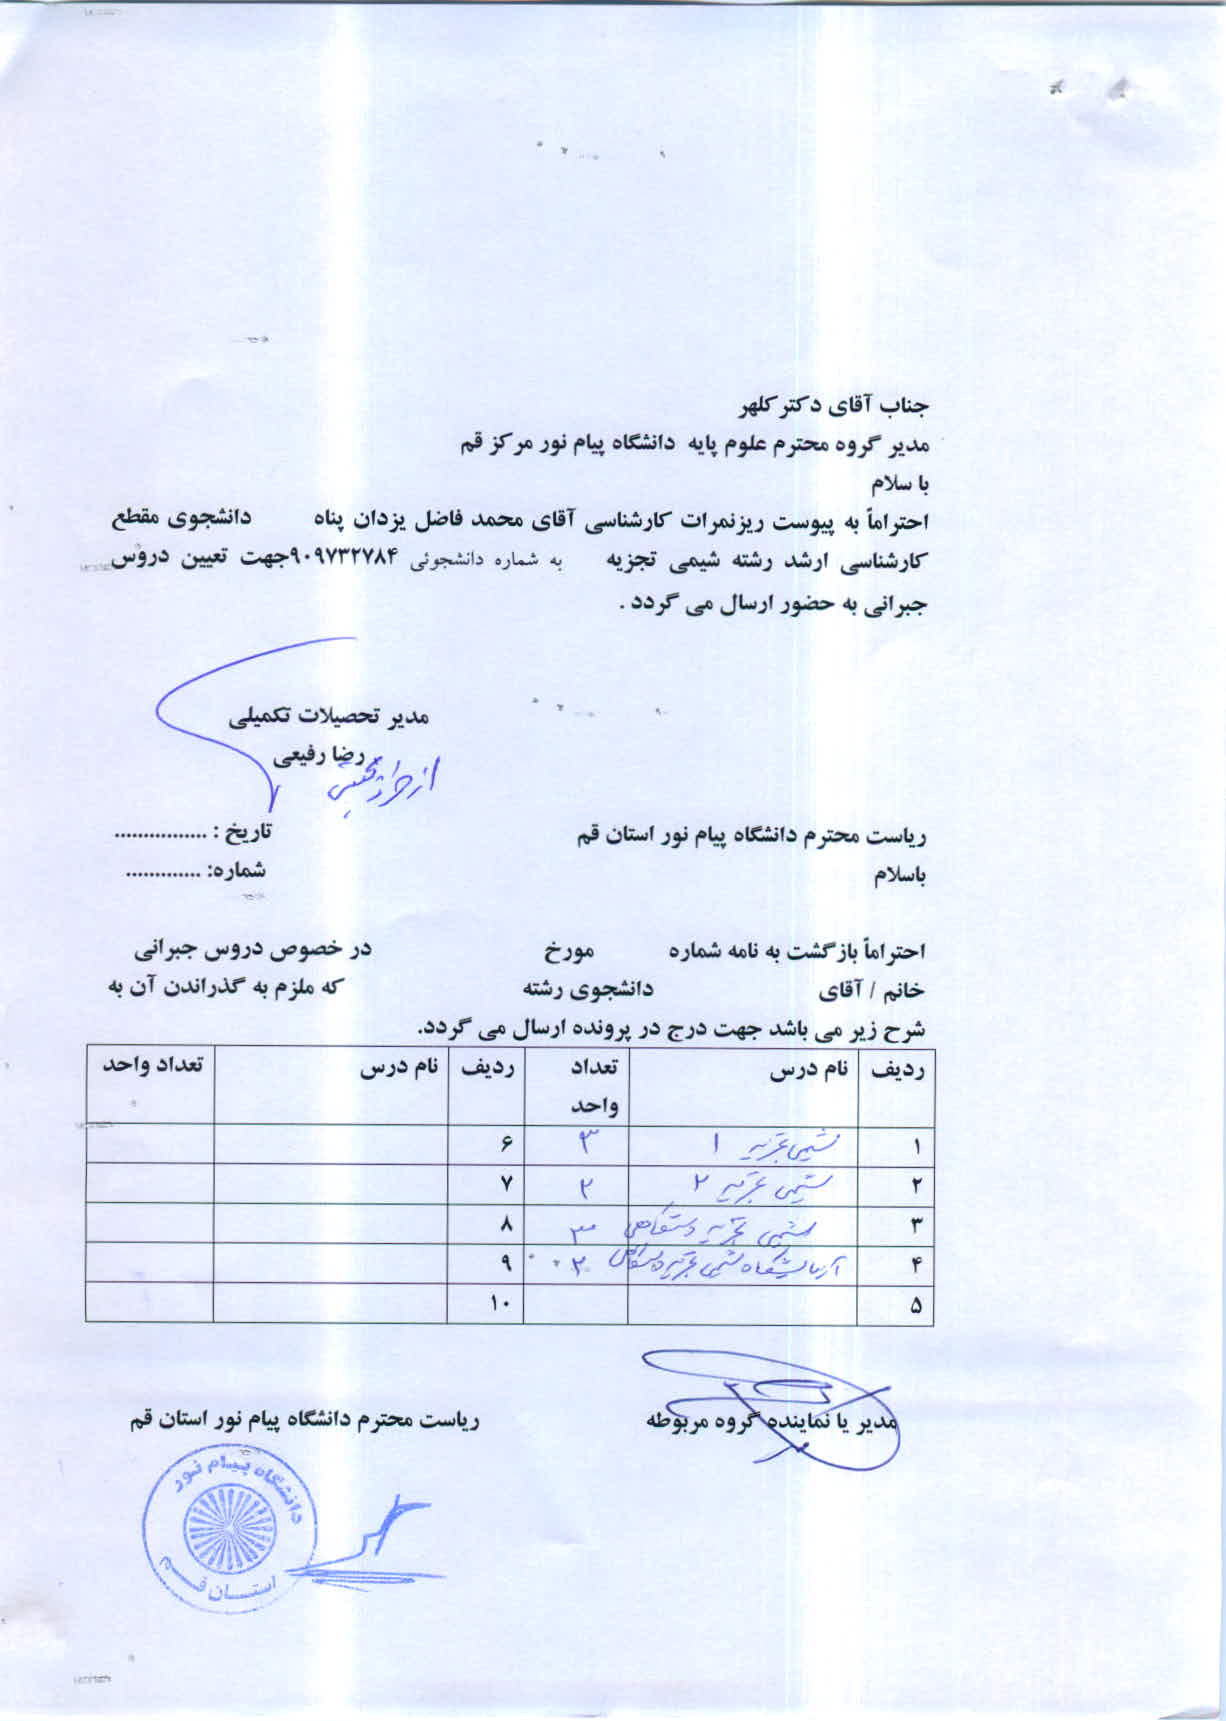 جناب آقای دکتر کلهر
مدیر گروه محترم علوم پایه دانشگاه پیام نور مرکز قم
با سلام
احتراماً به پیوست ریزنمرات کارشناسی آقای محمد فاضل یزدان پناه دانشجوی مقطع
کارشناسی ارشد رشته شیمی تجزیه به شماره دانشجوئی ۹۰۹۷۳۲۷۸۴جهت تعیین دروس
جبرانی به حضور ارسال می گردد .
مدیر تحصیلات تکمیلی
رضا رفیعی
از طرف
ریاست محترم دانشگاه پیام نور استان قم
تاریخ : ................
باسلام
شماره: .............
احتراماً بازگشت به نامه شماره مورخ در خصوص دروس جبرانی
خانم / آقای دانشجوی رشته که ملزم به گذراندن آن به
شرح زیر می باشد جهت درج در پرونده ارسال می گردد.
ردیف نام درس تعداد واحد ردیف نام درس تعداد واحد
۱ شیمی تجزیه ۱ ۳ ۶
۲ شیمی تجزیه ۲ ۲ ۷
۳ شیمی تجزیه دستگاهی ۳ ۸
۴ آزمایشگاه شیمی تجزیه دستگاهی ۲ ۹
۵ ۱۰
مدیر یا نماینده گروه مربوطه
ریاست محترم دانشگاه پیام نور استان قم
دانشگاه پیام نور
استان قم